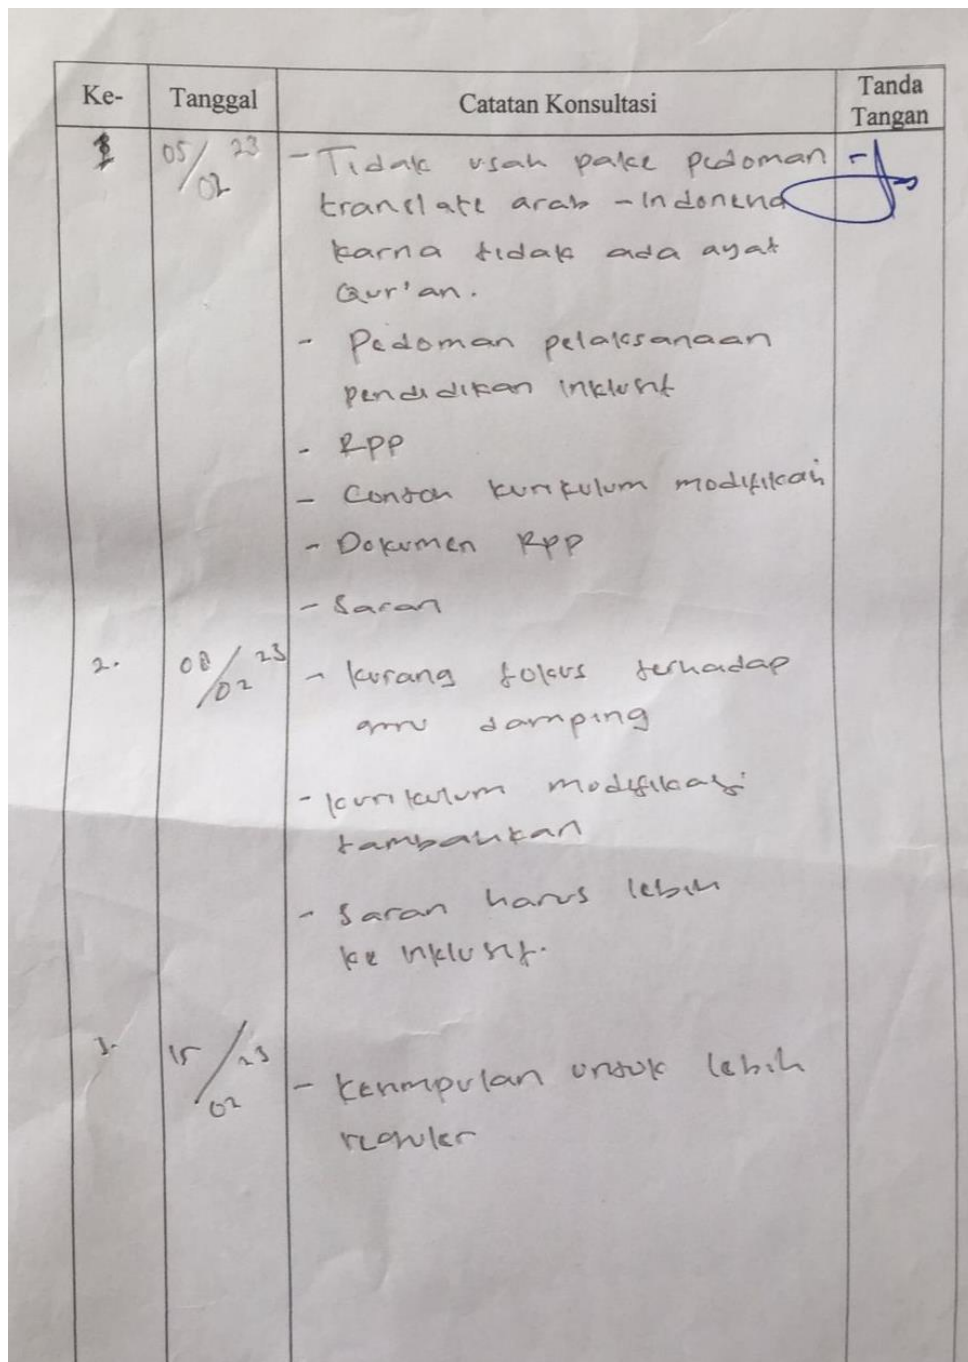 Ke- Tanggal Catatan Konsultasi Tanda Tangan
1 05/02 23 - Tidak usah pake pedoman
translate arab - Indonesia
karna tidak ada ayat
Qur'an.
- Pedoman pelaksanaan
pendidikan inklusif
- RPP
- Contoh kurikulum modifikasi
- Dokumen RPP
- Saran
2. 08/02 23 - kurang fokus terhadap
guru damping
- kurikulum modifikasi
tambahkan
- Saran harus lebih
ke inklusif.
3. 15/02 23 - Kesimpulan untuk lebih
reguler